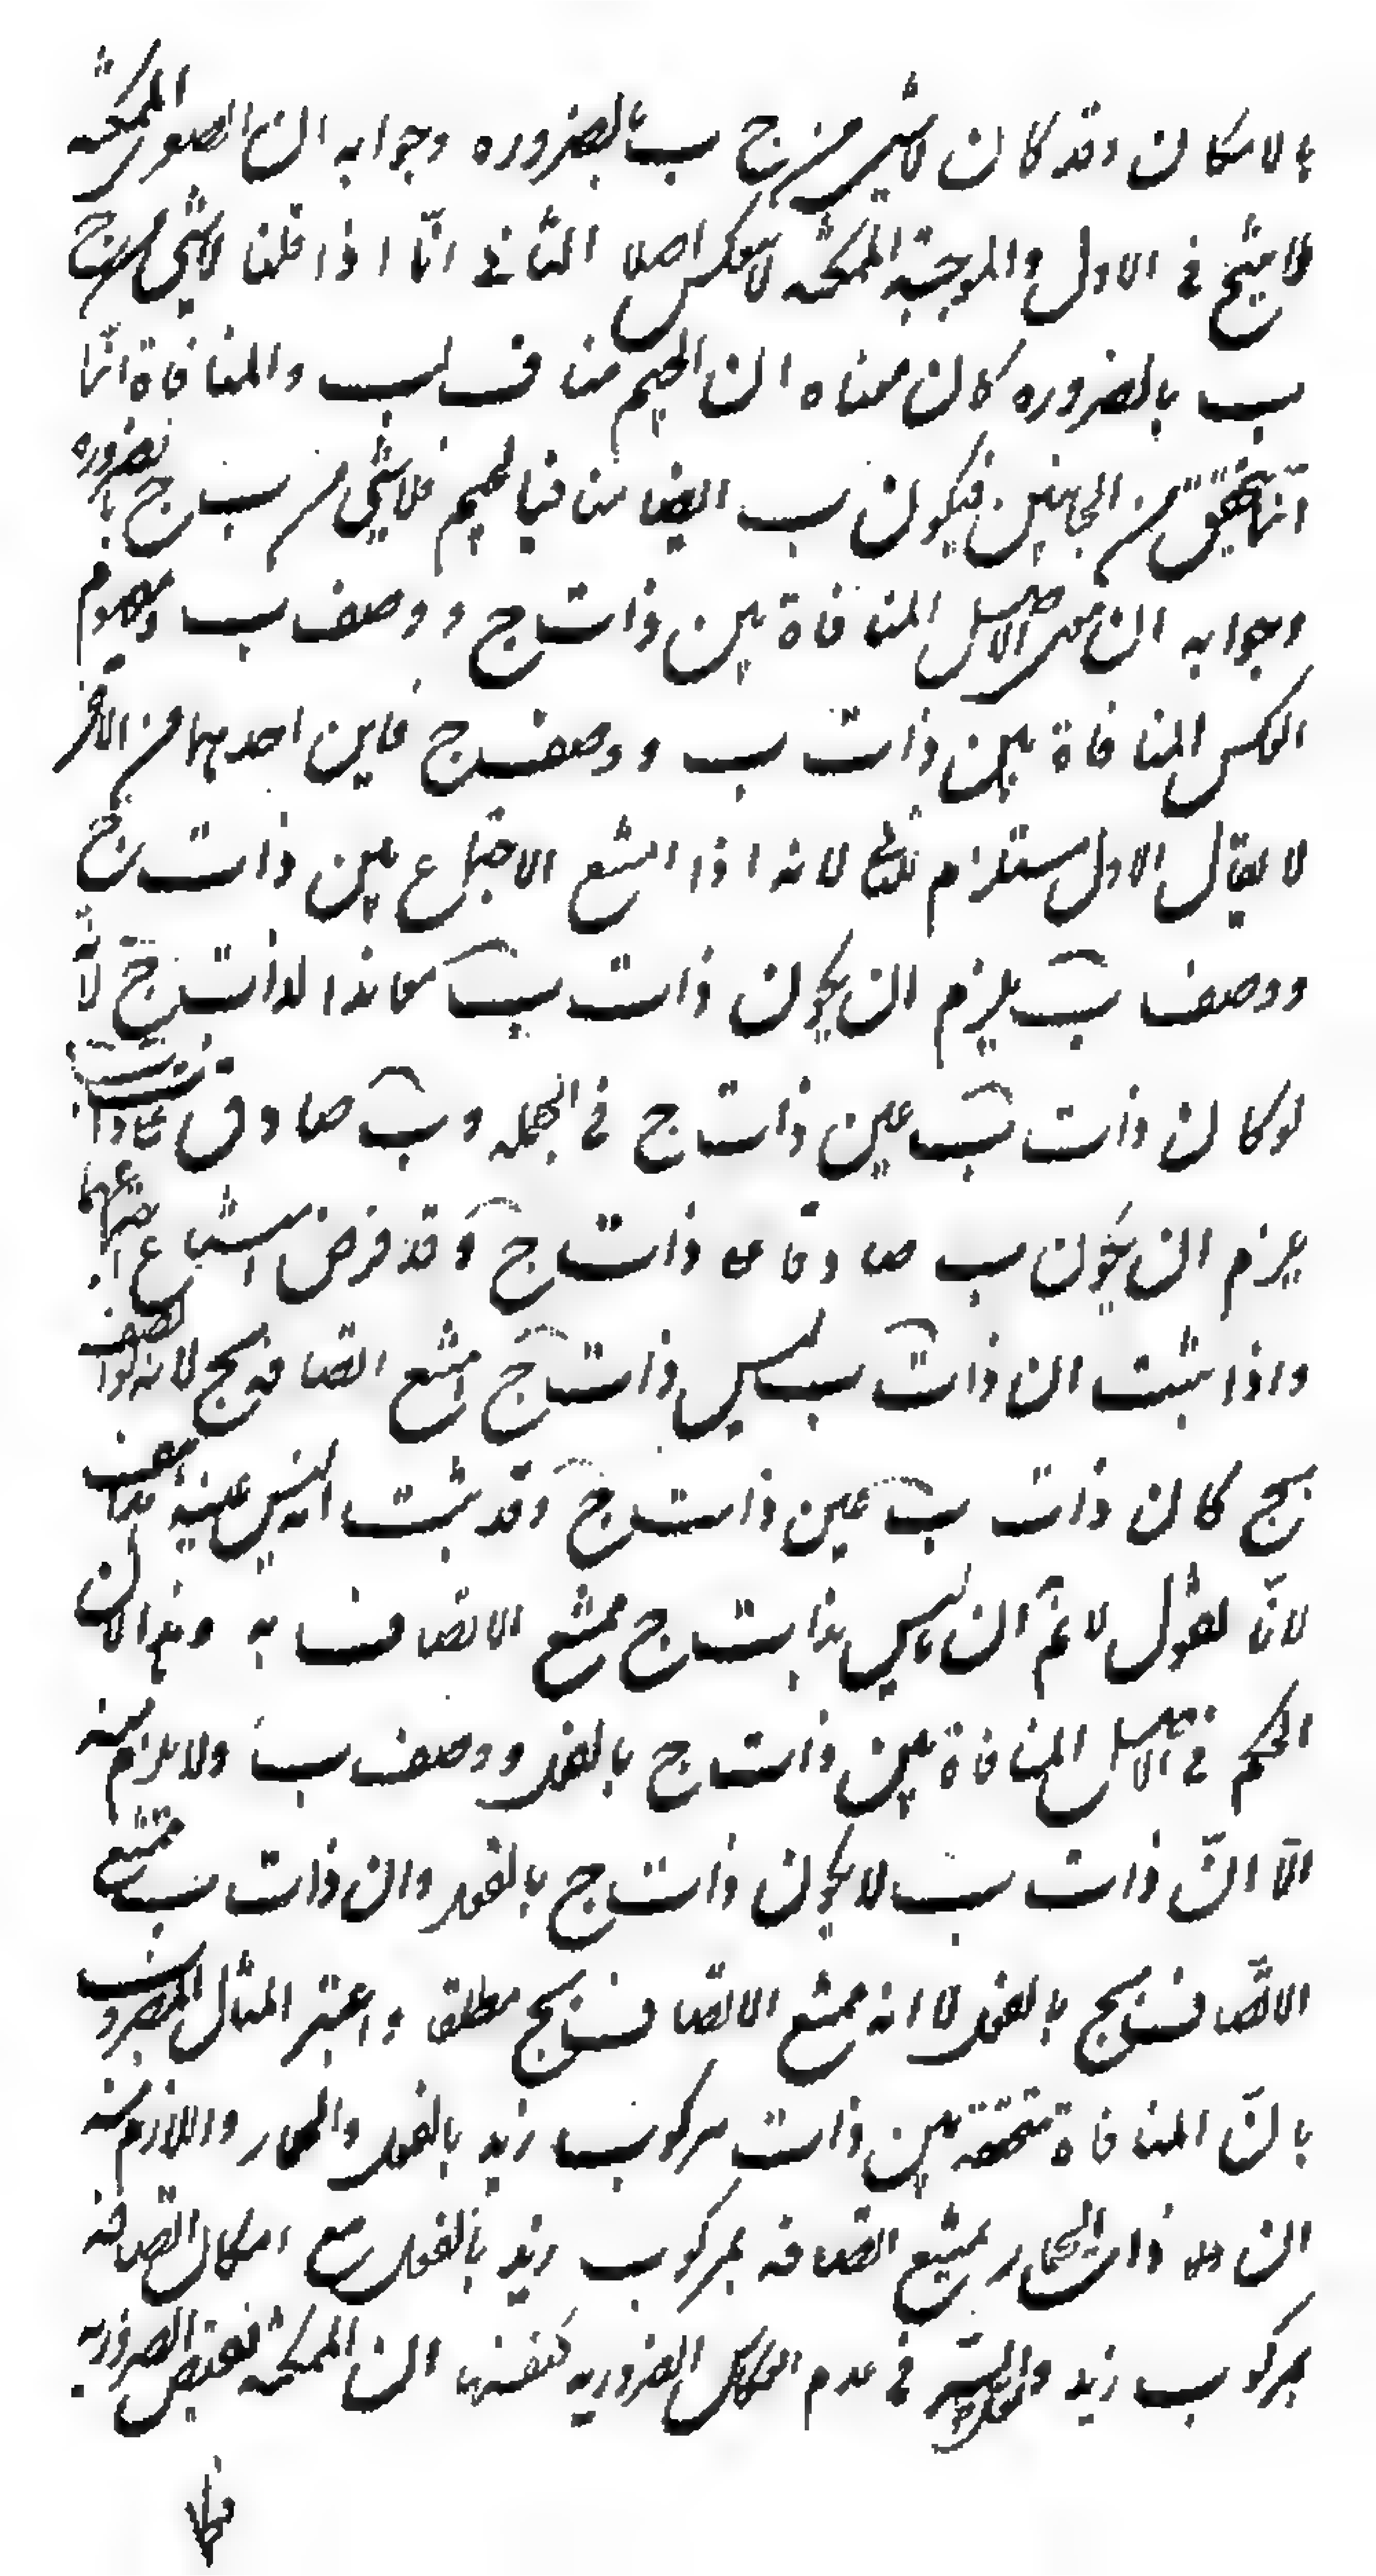 بالامكان وقد كان لا شىء من ج ب بالضروره وجوابه ان الصغرى الممكنه
لا ينتج فى الاول والموجبة الممكنه لا ينعكس اصلا الثانى انّا اذا قلنا لا شىء من ج
ب بالضروره كان معناه ان الجيم مناف لب والمنافاة انّما
انما يتحقق من الجانبين فيكون ب ايضا منافيا لجيم فلا شىء من ب ج بالضروره
وجوابه ان مفهوم الاصل المنافاة بين ذات ج و وصف ب ومفهوم
العكس المنافاة بين ذات ب و وصف ج فاين احدهما من الآخر
لا يقال الاول مستلزم للثانى لانه اذا امتنع الاجتماع بين ذات ج
ووصف ب يلزم ان يكون ذات ب معاندا لذات ج لانّه
لو كان ذات ب عين ذات ج فى الجمله و ب صادق على ذات ب
يلزم ان يكون ب صادقا على ذات ج وقد فرض امتناع اجتماعهما
واذا ثبت ان ذات ب ليس ذات ج امتنع اتصافه بج لانه لو اتصف
بج كان ذات ب عين ذات ج وقد ثبت انه ليس عينه هذا خلف
لانّا نقول لا نم ان ما ليس بذات ج ممتنع الاتصاف به وانما لان
الحكم فى الاصل المنافاة بين ذات ج بالفعل ووصف ب ولا يلزم منه
الا انّ ذات ب لا يكون ذات ج بالفعل وان ذات ب ممتنع
الاتصاف بج بالفعل لا انه ممتنع الاتصاف بج مطلقا واعتبر المثال المضروب
بان المنافاة متحققه بين ذات مركوب زيد بالفعل والحمار واللازم منه
ان ذات الحمار يمتنع اتصافه بمركوب زيد بالفعل مع امكان اتصافه
بمركوب زيد والسّر فى عدم انعكاس الضروريه كنفسها ان الممكنه نقيض الضروريه